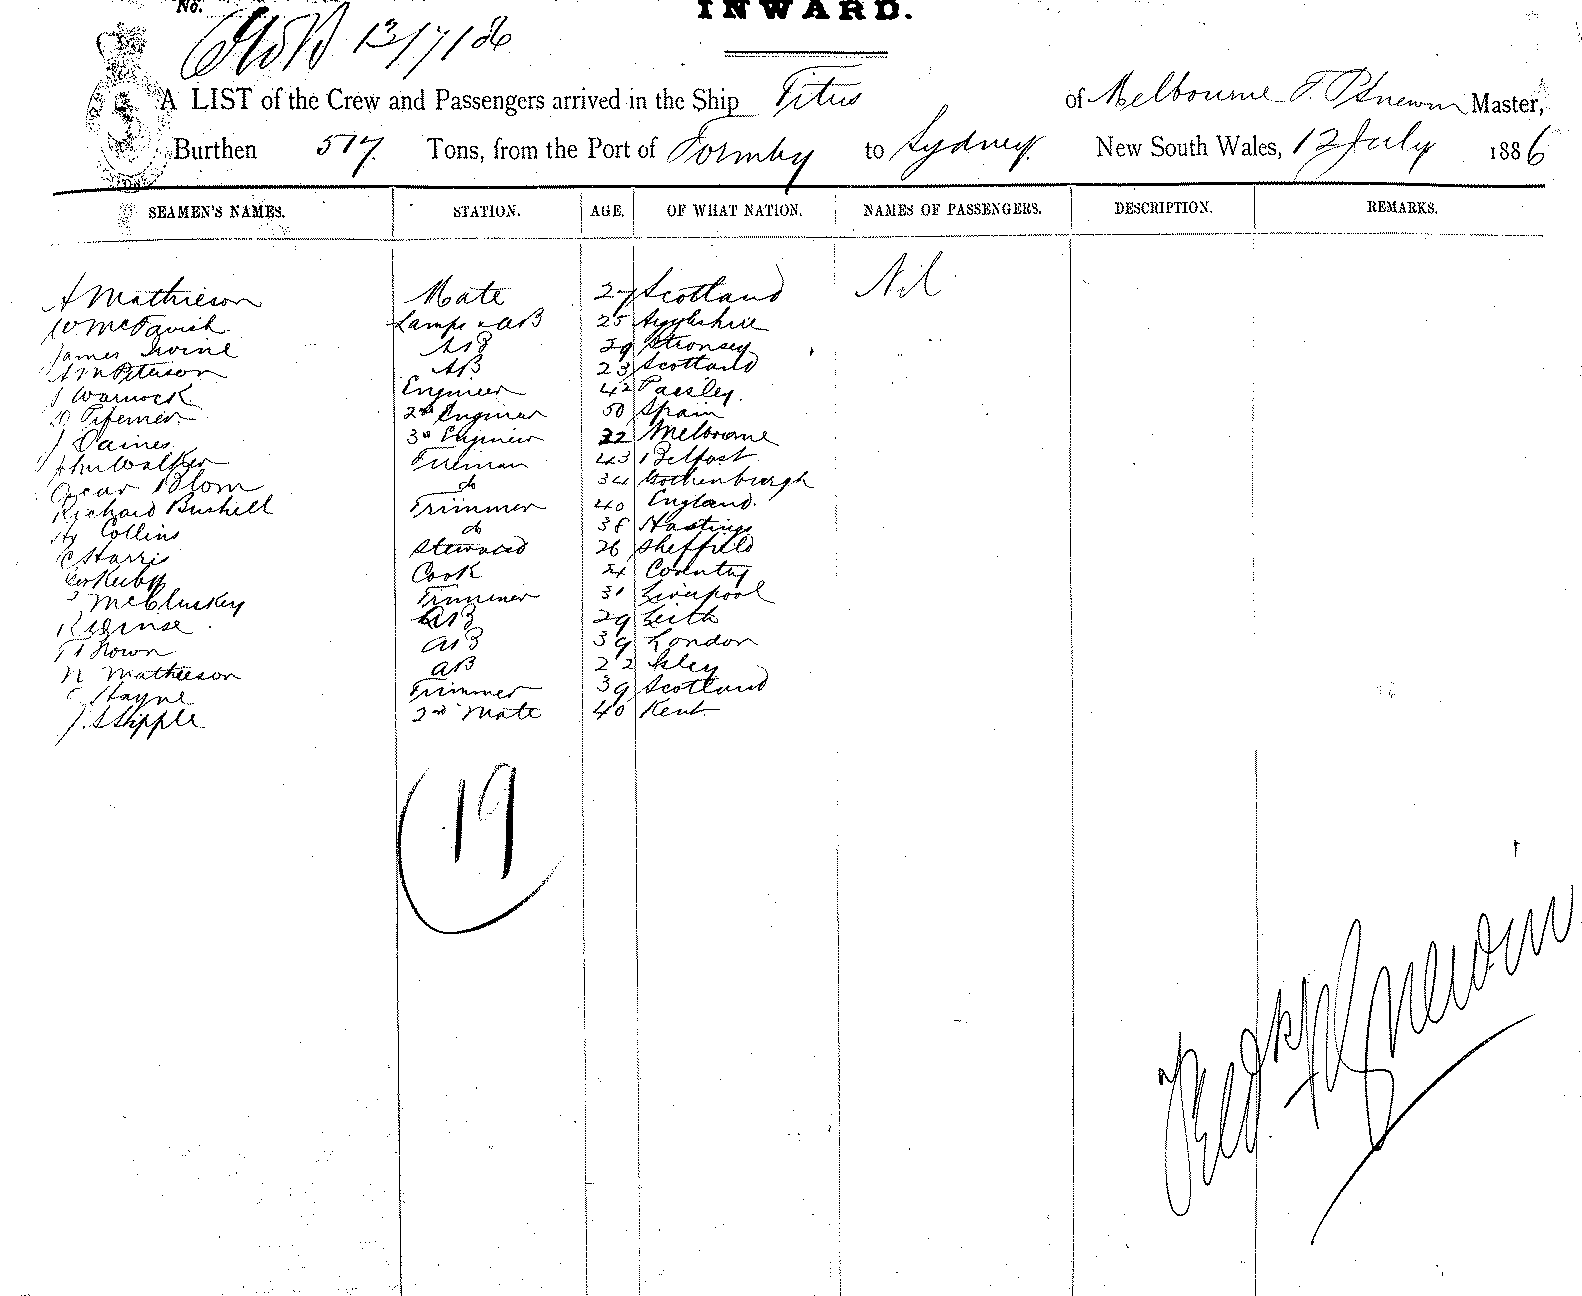 No.
INWARD.
13/7/86
A LIST of the Crew and Passengers arrived in the Ship Titus of Melbourne Master,
Burthen 517 Tons, from the Port of Formby to Sydney New South Wales, 12 July 1886
SEAMEN'S NAMES. STATION. AGE. OF WHAT NATION. NAMES OF PASSENGERS. DESCRIPTION. REMARKS.
A Mathieson Mate 27 Scotland Nil
W McTavish Lamps & AB 25 Argyleshire
James Irvine AB 29 Stronsey
AB 23 Scotland
J Warnock Engineer 42 Paisley.
2nd Engineer 50 Spain
J Daines 3rd Engineer 32 Melbourne
John Walker Fireman 43 Belfast
Oscar Blom do 34 Gothenburgh
Richard Bushell Trimmer 40 England.
Hy Collins do 38 Hastings
C Harris Steward 26 Sheffield
Cook 24 Coventry
McCluskey Trimmer 31 Liverpool
AB 29 Leith
Brown AB 39 London
N Mathieson AB 22 Isley
Hayne Trimmer 39 Scotland
2nd Mate 40 Kent
19